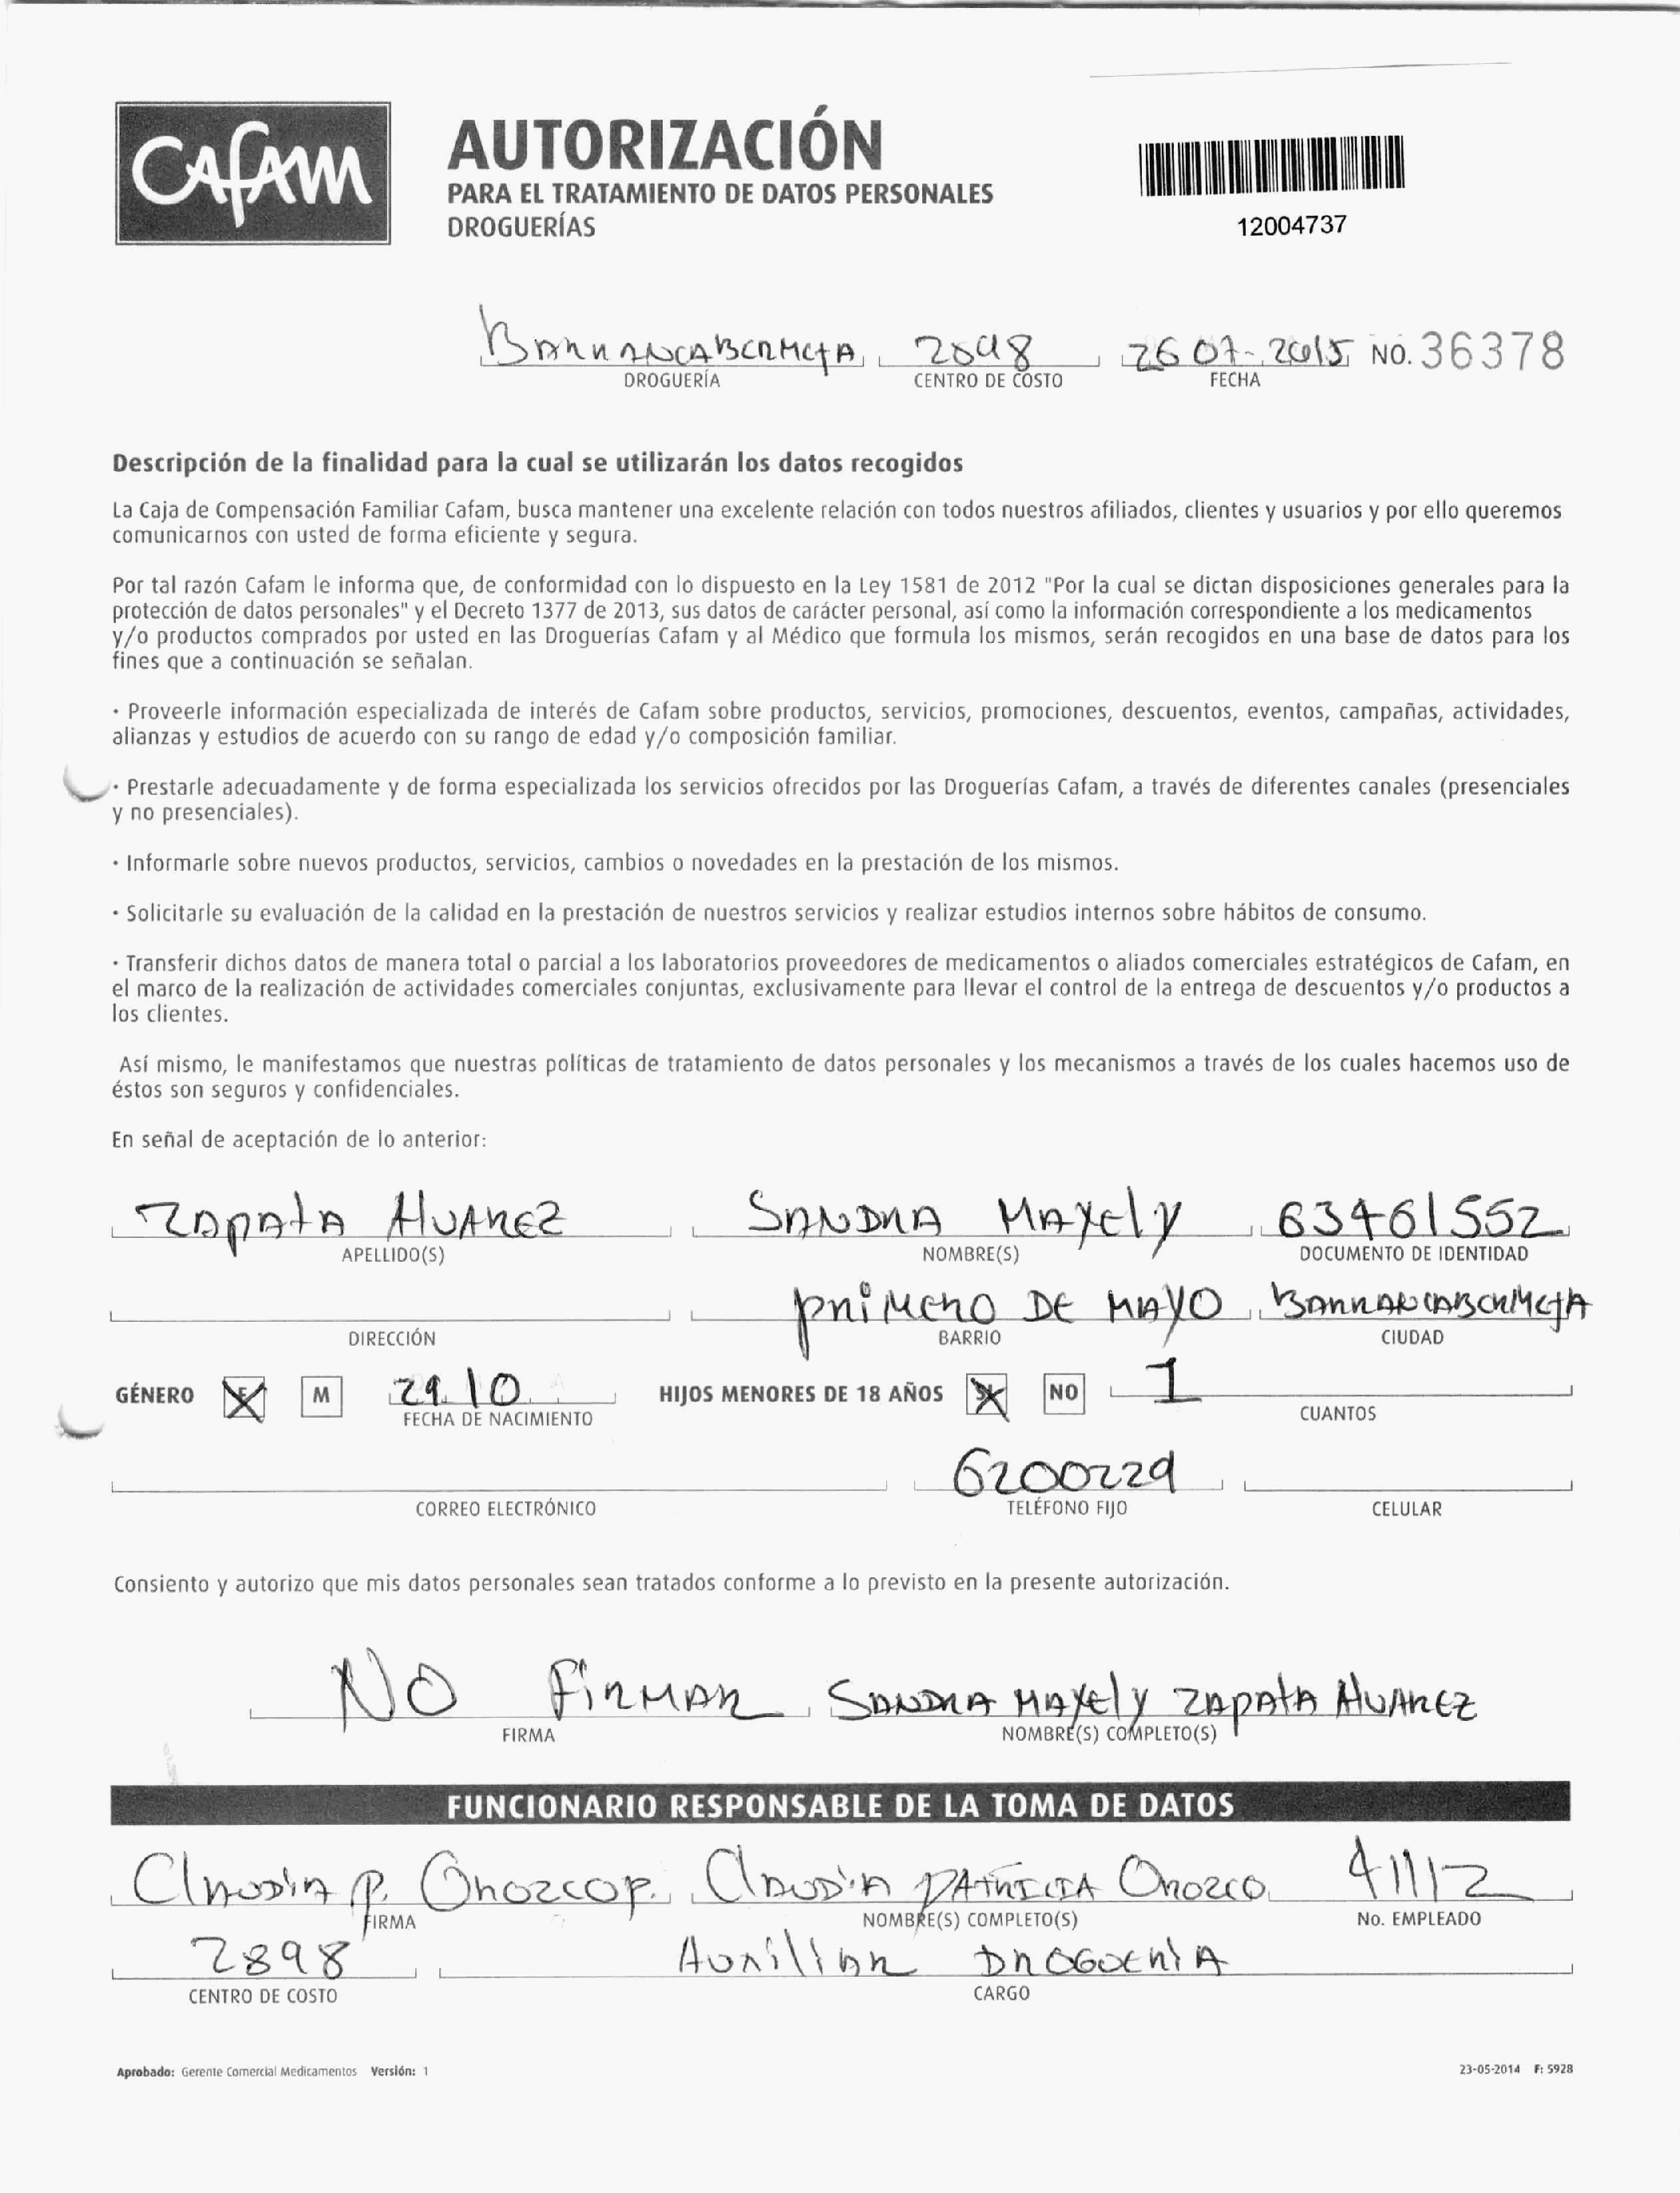 CAFAM
AUTORIZACIÓN
PARA EL TRATAMIENTO DE DATOS PERSONALES
DROGUERÍAS
12004737
BARRANCABERMEJA 2898 26 07-2015 NO. 36378
DROGUERÍA CENTRO DE COSTO FECHA
Descripción de la finalidad para la cual se utilizarán los datos recogidos
La Caja de Compensación Familiar Cafam, busca mantener una excelente relación con todos nuestros afiliados, clientes y usuarios y por ello queremos
comunicarnos con usted de forma eficiente y segura.
Por tal razón Cafam le informa que, de conformidad con lo dispuesto en la Ley 1581 de 2012 "Por la cual se dictan disposiciones generales para la
protección de datos personales" y el Decreto 1377 de 2013, sus datos de carácter personal, así como la información correspondiente a los medicamentos
y/o productos comprados por usted en las Droguerías Cafam y al Médico que formula los mismos, serán recogidos en una base de datos para los
fines que a continuación se señalan.
· Proveerle información especializada de interés de Cafam sobre productos, servicios, promociones, descuentos, eventos, campañas, actividades,
alianzas y estudios de acuerdo con su rango de edad y/o composición familiar.
· Prestarle adecuadamente y de forma especializada los servicios ofrecidos por las Droguerías Cafam, a través de diferentes canales (presenciales
y no presenciales).
· Informarle sobre nuevos productos, servicios, cambios o novedades en la prestación de los mismos.
· Solicitarle su evaluación de la calidad en la prestación de nuestros servicios y realizar estudios internos sobre hábitos de consumo.
· Transferir dichos datos de manera total o parcial a los laboratorios proveedores de medicamentos o aliados comerciales estratégicos de Cafam, en
el marco de la realización de actividades comerciales conjuntas, exclusivamente para llevar el control de la entrega de descuentos y/o productos a
los clientes.
Así mismo, le manifestamos que nuestras políticas de tratamiento de datos personales y los mecanismos a través de los cuales hacemos uso de
éstos son seguros y confidenciales.
En señal de aceptación de lo anterior:
ZAPATA ALVAREZ SANDRA MAYELY 63461552
APELLIDO(S) NOMBRE(S) DOCUMENTO DE IDENTIDAD
PRIMERO DE MAYO BARRANCABERMEJA
DIRECCIÓN BARRIO CIUDAD
GÉNERO F M 29 10 HIJOS MENORES DE 18 AÑOS SI NO 1
FECHA DE NACIMIENTO CUANTOS
6200229
CORREO ELECTRÓNICO TELÉFONO FIJO CELULAR
Consiento y autorizo que mis datos personales sean tratados conforme a lo previsto en la presente autorización.
NO FIRMAR SANDRA MAYELY ZAPATA ALVAREZ
FIRMA NOMBRE(S) COMPLETO(S)
FUNCIONARIO RESPONSABLE DE LA TOMA DE DATOS
CLAUDIA P. OROZCO P. CLAUDIA PATRICIA OROZCO 41112
FIRMA NOMBRE(S) COMPLETO(S) No. EMPLEADO
2898 AUXILIAR DROGUERIA
CENTRO DE COSTO CARGO
Aprobado: Gerente Comercial Medicamentos Versión: 1 23-05-2014 F: 5928